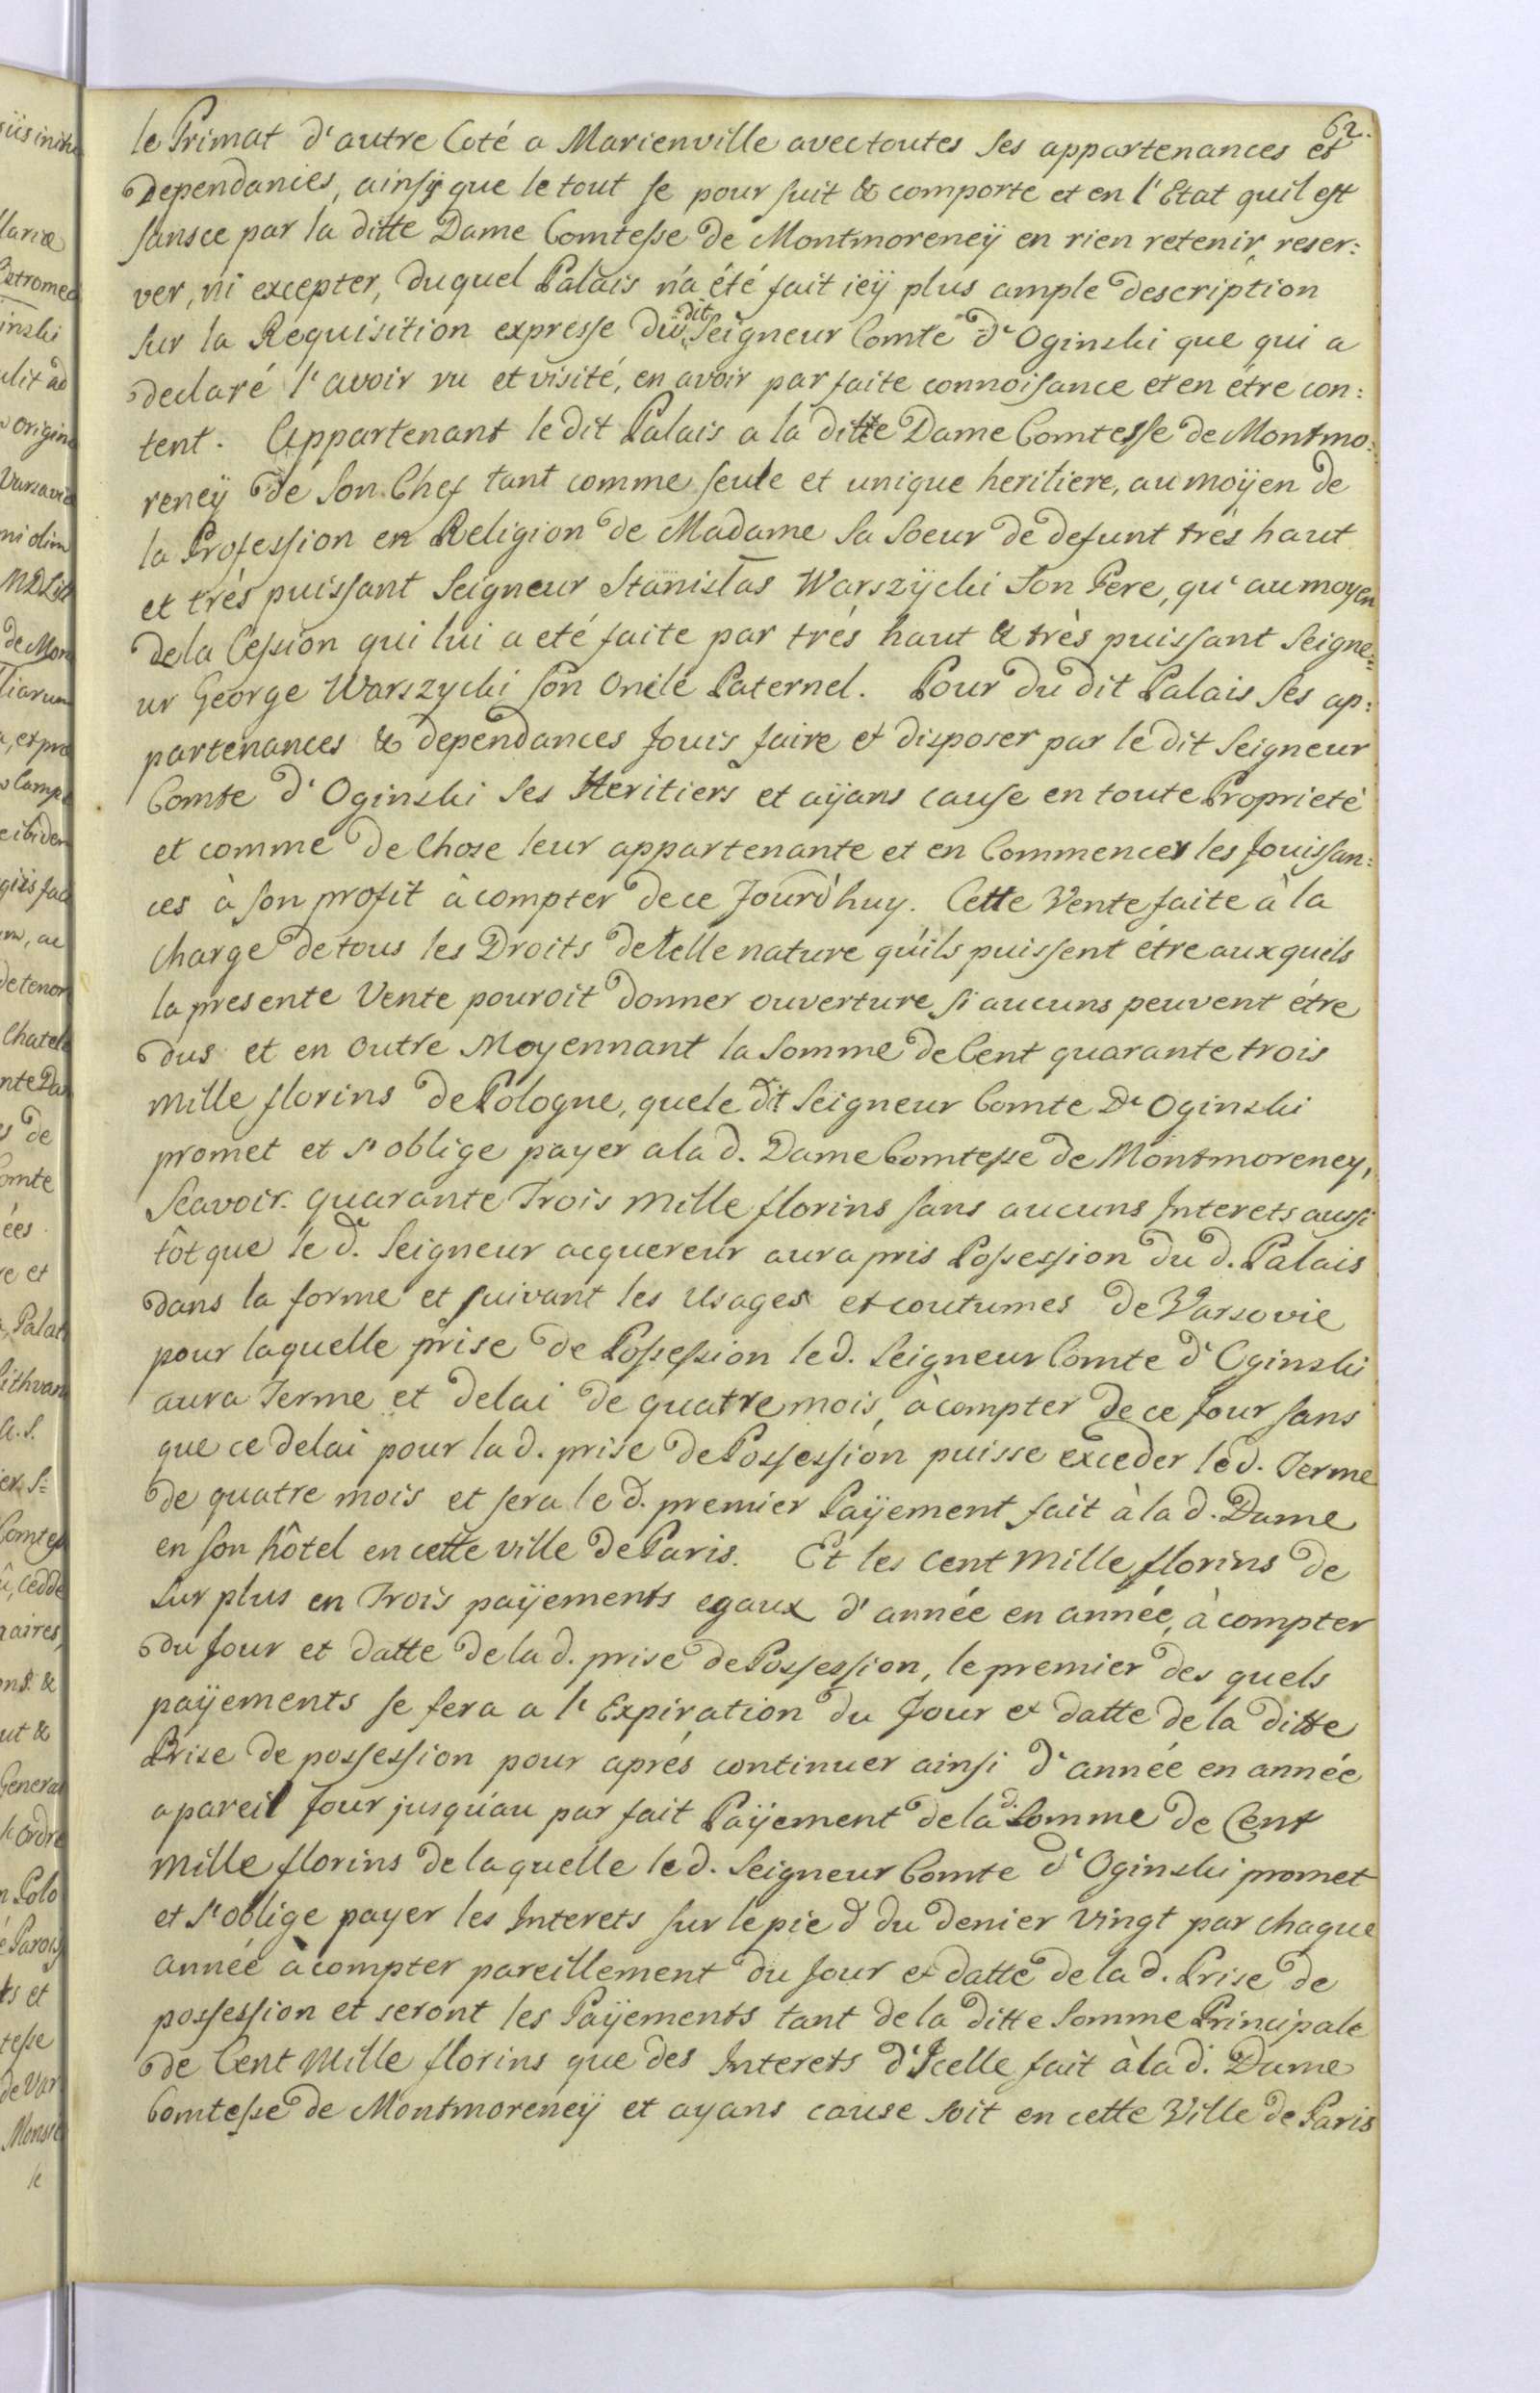 62.
le Primat d'autre Coté a Marienville avec toutes ses appartenances et
Dependances, ainsÿ que le tout se pour suit & comporte et en l'Etat quil est
sansce par la ditte Dame Comtesse de Montmoreneÿ en rien retenir, reser:
ver, ni excepter, duquel Palais n'a été fait icÿ plus ample description
sur la Requisition expresse du dit Seigneur Comte d'Oginski que qui a
declaré l'avoir vu et visité, en avoir par faite connoisance et en être con:
tent. Appartenant le dit Palais a la ditte Dame Comtesse de Montmo:
reneÿ de son Chef tant comme seule et unique heritiere, au moÿen de
la Profession en Religion de Madame sa Soeur de defunt trés haut
et trés puissant Seigneur Stanislas Warszÿcki son Pere, qu'au moyen
de la Cession qui lui a eté faite par trés haut & très puissant Seigne:
ur George Warszycki son Oncle Paternel. Pour du dit Palais ses ap:
partenances & dependances Jouis faire et disposer par le dit Seigneur
Comte d'Oginski ses Heritiers et aÿans cause en toute Proprieté
et comme de Chose leur appartenante et en Commencer les Jouissan:
ces à son profit à compter de ce Jourd'huy. Cette Vente faite à la
charge de tous les Droits de telle nature qu'ils puissent être aux quels
la presente Vente pouroit donner ouverture si aucuns peuvent être
dus et en outre Moyennant la Somme de Cent quarante trois
mille florins de Pologne, que le dit Seigneur Comte D'Oginski
promet et s'oblige payer a la d. Dame Comtesse de Montmoreney,
Scavoir. quarante Trois mille florins sans aucuns Interets aussi
tôt que le d. Seigneur acquereur aura pris Possession du d. Palais
dans la forme et suivant les Usages et coutumes de Varsovie
pour laquelle prise de Possession le d. Seigneur Comte d'Oginski
aura Terme et delai de quatre mois, à compter de ce Jour sans
que ce delai pour la d. prise de Possession puisse exceder le d. Terme
de quatre mois et sera le d. premier Paÿement fait à la d. Dame
en son hôtel en cette ville de Paris. Et les cent mille florins de
surplus en Trois paÿements egaux d'année en année, à compter
du Jour et datte de la d. prise de Possession, le premier des quels
paÿements se fera a l'Expiration du Jour et datte de la ditte
Prise de possession pour aprés continuer ainsi d'année en année
a pareil Jour jusqu'au par fait Paÿement de la d. Somme de Cent
mille florins de laquelle le d. Seigneur Comte d'Oginski promet
et s'oblige payer les Interets sur le pied du denier vingt par chaque
année à compter pareillement du Jour et datte de la d. Prise de
possession et seront les Paÿements tant de la ditte Somme Principale
de Cent Mille florins que des Interets d'Icelle fait à la d. Dame
Comtesse de Montmoreneÿ et ayans cause soit en cette Ville de Paris